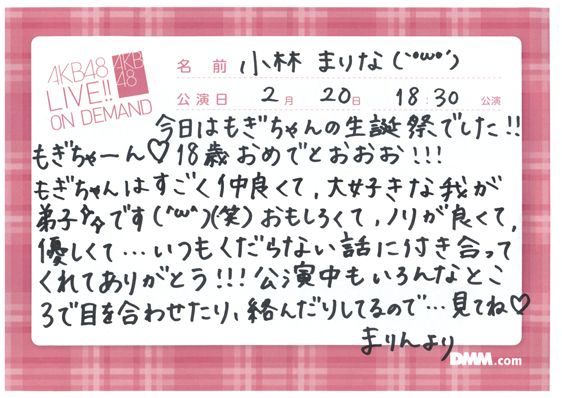 AKB48
LIVE!!
ON DEMAND
AKB
48
名前 小林 まりな(`･ω･´)
公演日 2月 20日 18:30 公演
今日はもぎちゃんの生誕祭でした!!
もぎちゃーん♡18歳おめでとおおお!!!
もぎちゃんはすごく仲良くて,大好きな我が
弟子です(^ω^)(笑)おもしろくて,ノリが良くて,
優しくて…いつもくだらない話に付き合って
くれてありがとう!!!公演中もいろんなとこ
ろで目を合わせたり、絡んだりしてるので…見てね♡
まりんより
DMM.com